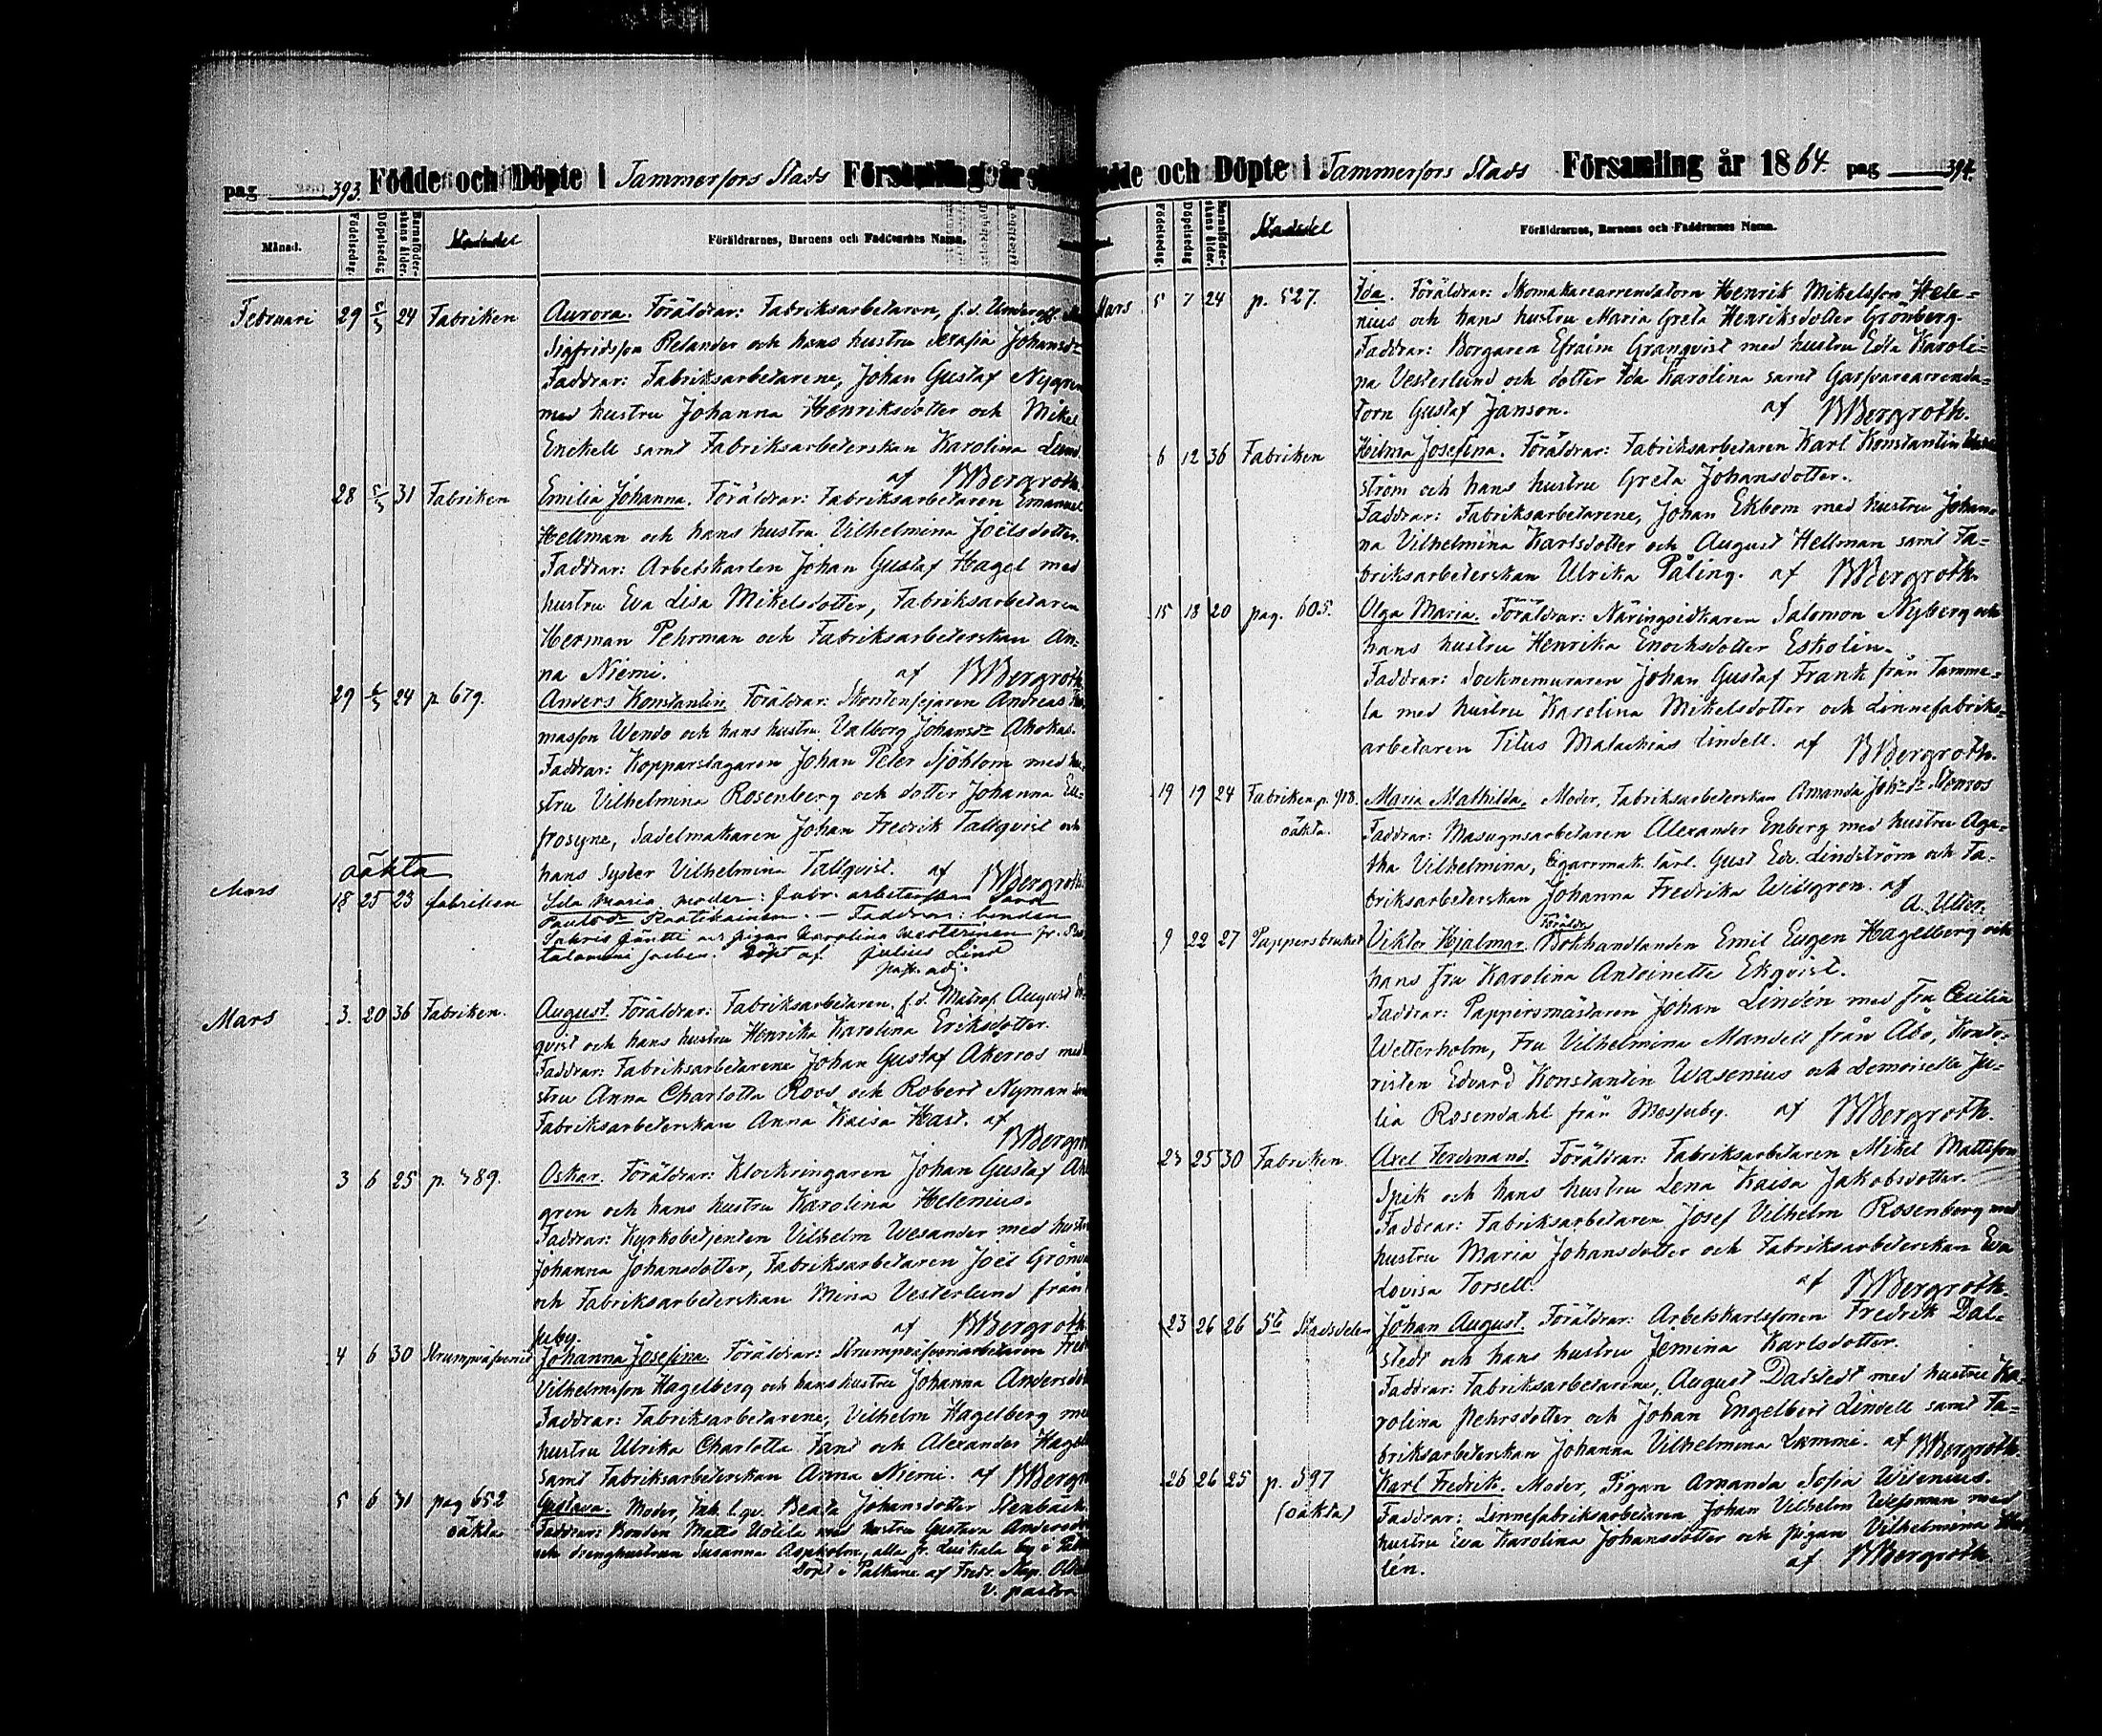 pag 393. Födde och Döpte i Tammerfors Stads Församling år
Månad. Födelsedag. Döpelsedag. Barnaföderskans ålder. Stadsdel Föräldrarnes, Barnens och Faddrarnes Namn.
Februari 29 5/3 24 Fabriken Aurora. Föräldrar: Fabriksarbetaren, f.d. Underoff.
Sigfridsson Relander och hans hustru Serafia Johansdr
Faddrar: Fabriksarbetarene, Johan Gustaf Nygren
med hustru Johanna Henriksdotter och Mikel
Enckell samt Fabriksarbeterskan Karolina Lund.
af BBergroth.
28 5/3 31 Fabriken Emilia Johanna. Föräldrar: Fabriksarbetaren Emanuel
Hellman och hans hustru Vilhelmina Joelsdotter.
Faddrar: Arbetskarlen Johan Gustaf Hagel med
hustru Eva Lisa Mikelsdotter, Fabriksarbetaren
Herman Pehrman och Fabriksarbeterskan An-
na Niemi. af BBergroth
29 6/3 24 p 679. Anders Konstantin. Föräldrar: Skorstensfejaren Andreas
masson Wendo och hans hustru Valborg Johansdr Ahokas.
Faddrar: Kopparslagaren Johan Peter Sjöblom med hu-
stru Vilhelmina Rosenberg och dotter Johanna Eu-
frosyne, Sadelmakaren Johan Fredrik Tallqvist och
hans syster Vilhelmina Tallqvist. af BBergroth.
oäkta
Mars 18 25 23 fabriken Ida Maria moder: fabr. arbeterskan Sara
Paulsdr Raatikainen. — Faddrar: bonden
Sakris Jäntti och pigan Karolina
Döpt af Julius Lind
past. adj.
Mars 3. 20 36 Fabriken. August. Föräldrar: Fabriksarbetaren, f.d. Matros August
qvist och hans hustru Henrika Karolina Eriksdotter.
Faddrar: Fabriksarbetarene Johan Gustaf Akerros med
stru Anna Charlotta Roos och Robert Nyman
Fabriksarbeterskan Anna Kaisa Hast. af
BBergro
3 6 25 p. 389. Oskar. Föräldrar: Klockringaren Johan Gustaf
gren och hans hustru Karolina Helenius.
Faddrar: Kyrkobetjenten Vilhelm Wesander med hustru
Johanna Johansdotter, Fabriksarbetaren Joel
och Fabriksarbeterskan Mina Vesterlund från
by. af BBergroth
4 6 30 Johanna Josefina. Föräldrar:
Vilhelmsson Hagelberg och hans hustru Johanna Andersdot
Faddrar: Fabriksarbetarene, Vilhelm Hagelberg med
hustru Ulrika Charlotta Fant och Alexander Hagel
samt Fabriksarbeterskan Anna Niemi. af BBergr
5 6 31 pag 652 Gustava. Moder, Inh. Beata Johansdotter Stenback
oäkta Faddrar: Bonden Matts Uotila med hustru Gustava Andersd
och drenghustrun Susanna Aspholm, alla fr. Luikala by i Pälk
Döpt i Pälkäne af Fredr.
v. pastor
dde och Döpte i Tammerfors Stads Församling år 1864. pag 394.
Födelsedag. Döpelsedag Barnaföderskans ålder. Stadsdel Föräldrarnes, Barnens och Faddrarnes Namn.
Mars 5 7 24 p. 527. Ida. Föräldrar: Skomakarearrendatorn Henrik Mikelsson Hele-
nius och hans hustru Maria Greta Henriksdotter Grönberg.
Faddrar: Borgaren Efraim Granqvist med hustru Edla Karoli-
na Vesterlund och dotter Ida Karolina samt Garfvarearrenda-
torn Gustaf Janson. af BBergroth.
6 12 36 Fabriken Hilma Josefina. Föräldrar: Fabriksarbetaren Karl Konstantin
ström och hans hustru Greta Johansdotter.
Faddrar: Fabriksarbetarene, Johan Ekbom med hustru Johan-
na Vilhelmina Karlsdotter och August Hellman samt Fa-
briksarbeterskan Ulrika Påling. af BBergroth.
15 18 20 pag. 605. Olga Maria. Föräldrar: Näringsidkaren Salomon Nyberg och
hans hustru Henrika Enochsdotter Eskolin.
Faddrar: Socknemuraren Johan Gustaf Frank från Tamme-
la med hustru Karolina Mikelsdotter och Linnefabriks-
arbetaren Titus Malachias Lindell. af BBergroth.
19 19 24 Fabriken p. 918. Maria Mathilda. Moder, Fabriksarbeterskan Amanda Johsdr Stenroos
oäkta. Faddrar: Masugnsarbetaren Alexander Enberg med hustru Aga-
tha Vilhelmina, Cigarrmak. lärl. Gust Edv. Lindström och Fa-
briksarbeterskan Johanna Fredrika Widgren. af
A.
Föräldr
9 22 27 Pappersbruket Viktor Hjalmar. Bokhandlanden Emil Eugen Hagelberg och
hans fru Karolina Antoinette Ekqvist.
Faddrar: Pappersmästaren Johan Lindén med fru Cecilia
Wetterholm, Fru Vilhelmina Mandell från Åbo, Konto-
risten Edvard Konstantin Wasenius och Demoiselle Ju-
lia Rosendahl från Messuby. af BBergroth.
23 25 30 Fabriken Axel Ferdinand. Föräldrar: Fabriksarbetaren Mikel Mattsson
Spik och hans hustru Lena Kaisa Jakobsdotter.
Faddrar: Fabriksarbetaren Josef Vilhelm Rosenberg med
hustru Maria Johansdotter och Fabriksarbeterskan Eva
Lovisa Torsell. af BBergroth.
23 26 26 5te Stadsdelen Johan August. Föräldrar: Arbetskarlssonen Fredrik Dal-
stedt och hans hustru Jemina Karlsdotter.
Faddrar: Fabriksarbetarene, August Dalstedt med hustru Ka-
rolina Pehrsdotter och Johan Engelbert Lindell samt Fa-
briksarbeterskan Johanna Vilhelmina Lammi. af BBergroth.
26 26 25 p. 597 Karl Fredrik. Moder, Pigan Amanda Sofia Widenius.
(oäkta) Faddrar: Linnefabriksarbetaren Johan Vilhelm Wessman med
hustru Eva Karolina Johansdotter och pigan Vilhelmina
lén. af BBergroth